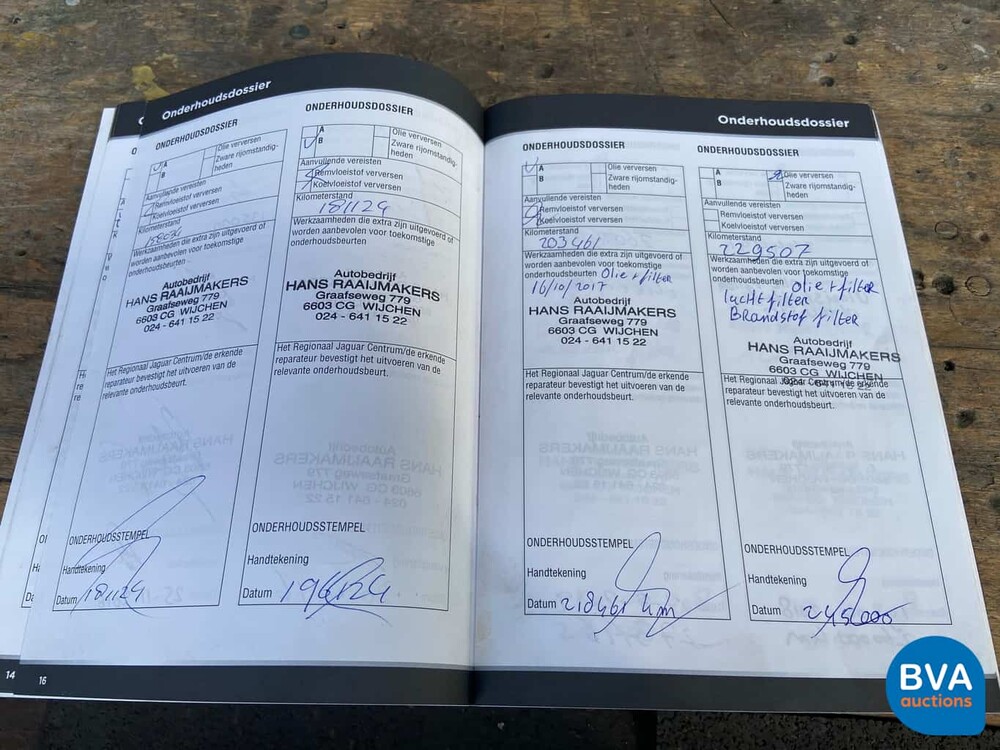 Onderhoudsdossier
ONDERHOUDSDOSSIER
A
B
Olie verversen
Zware rijomstandig-
heden
Aanvullende vereisten
Remvloeistof verversen
Koelvloeistof verversen
Kilometerstand
Werkzaamheden die extra zijn uitgevoerd of
worden aanbevolen voor toekomstige
onderhoudsbeurten
Autobedrijf
HANS RAAIJMAKERS
Graafseweg 779
6603 CG WIJCHEN
024 - 641 15 22
Het Regionaal Jaguar Centrum/de erkende
reparateur bevestigt het uitvoeren van de
relevante onderhoudsbeurt.
ONDERHOUDSSTEMPEL
Handtekening
Datum 181124
ONDERHOUDSDOSSIER
A
B
Olie verversen
Zware rijomstandig-
heden
Aanvullende vereisten
Remvloeistof verversen
Koelvloeistof verversen
Kilometerstand
181124
Werkzaamheden die extra zijn uitgevoerd of
worden aanbevolen voor toekomstige
onderhoudsbeurten
Autobedrijf
HANS RAAIJMAKERS
Graafseweg 779
6603 CG WIJCHEN
024 - 641 15 22
Het Regionaal Jaguar Centrum/de erkende
reparateur bevestigt het uitvoeren van de
relevante onderhoudsbeurt.
ONDERHOUDSSTEMPEL
Handtekening
Datum 196124
14
16
Onderhoudsdossier
ONDERHOUDSDOSSIER
A
B
Olie verversen
Zware rijomstandig-
heden
Aanvullende vereisten
Remvloeistof verversen
Koelvloeistof verversen
Kilometerstand
203461
Werkzaamheden die extra zijn uitgevoerd of
worden aanbevolen voor toekomstige
onderhoudsbeurten Olie + filter
16/10/2017
Autobedrijf
HANS RAAIJMAKERS
Graafseweg 779
6603 CG WIJCHEN
024 - 641 15 22
Het Regionaal Jaguar Centrum/de erkende
reparateur bevestigt het uitvoeren van de
relevante onderhoudsbeurt.
ONDERHOUDSSTEMPEL
Handtekening
Datum 218461 km
ONDERHOUDSDOSSIER
A
B
Olie verversen
Zware rijomstandig-
heden
Aanvullende vereisten
Remvloeistof verversen
Koelvloeistof verversen
Kilometerstand
229507
Werkzaamheden die extra zijn uitgevoerd of
worden aanbevolen voor toekomstige
onderhoudsbeurten Olie + filter
luchtfilter
Brandstof filter
Autobedrijf
HANS RAAIJMAKERS
Graafseweg 779
6603 CG WIJCHEN
024 - 641 15 22
Het Regionaal Jaguar Centrum/de erkende
reparateur bevestigt het uitvoeren van de
relevante onderhoudsbeurt.
ONDERHOUDSSTEMPEL
Handtekening
Datum 245000
BVA
auctions